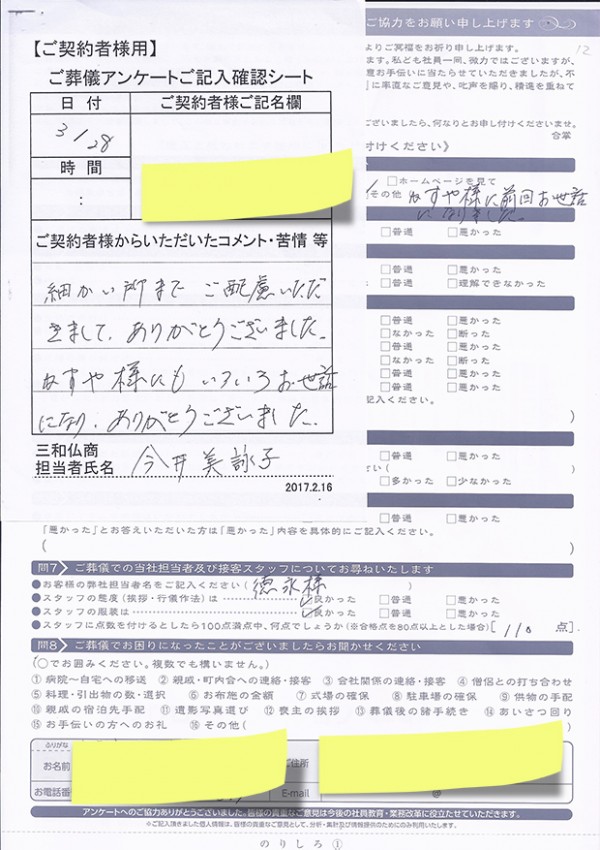 【ご契約者様用】
ご葬儀アンケートご記入確認シート
日 付
ご契約者様ご記名欄
3/28
時 間
:
ご契約者様からいただいたコメント・苦情 等
細かい所まで ご配慮いただ
きまして、ありがとうございました。
かすや様にも いろいろお世話
になり、ありがとうございました。
三和仏商
担当者氏名 今井美詠子
2017.2.16
ご協力をお願い申し上げます
12
よりご冥福をお祈り申し上げます。
ます。私ども社員一同、微力ではございますが、
意お手伝いに当たらせていただきましたが、不
に率直なご意見や、叱声を賜り、精進を重ねて
ございましたら、何なりとお申し付けくださいませ。
合掌
付けください》
□ホームページを見て
その他 かすや様に前回お世話
になりました。
□普通 □悪かった
□普通 □悪かった
□普通 □理解できなかった
□普通 □悪かった
□なかった □断った
□普通 □悪かった
□なかった □断った
□普通 □悪かった
□普通 □悪かった
記入ください。
)
□普通 □悪かった
い(
□多かった □少なかった
□普通 □悪かった
「悪かった」とお答えいただいた方は「悪かった」内容を具体的にご記入ください。
( )
問7 ご葬儀での当社担当者及び接客スタッフについてお尋ねいたします
●お客様の弊社担当者名をご記入ください( 徳永様 )
●スタッフの態度(挨拶・行儀作法)は ☑良かった □普通 □悪かった
●スタッフの服装は ☑良かった □普通 □悪かった
●スタッフに点数を付けるとしたら100点満点中、何点でしょうか(※合格点を80点以上とした場合)[ 110 点]
問8 ご葬儀でお困りになったことがございましたらお聞かせください
(○でお囲みください。複数でも構いません。)
①病院〜自宅への移送 ②親戚・町内会への連絡・接客 ③会社関係の連絡・接客 ④僧侶との打ち合わせ
⑤料理・引出物の数・選択 ⑥お布施の金額 ⑦式場の確保 ⑧駐車場の確保 ⑨供物の手配
⑩親戚の宿泊先手配 ⑪遺影写真選び ⑫喪主の挨拶 ⑬葬儀後の諸手続き ⑭あいさつ回り
⑮お手伝いの方へのお礼 ⑯その他( )
ふりがな
お名前
ご住所
お電話番
E-mail @
アンケートへのご協力ありがとうございました。皆様の貴重なご意見は今後の社員教育・業務改革に役立たせていただきます。
※ご記入頂きました個人情報は、皆様の貴重なご意見として、分析・集計及び情報提供のためにのみ利用いたします。
のりしろ①